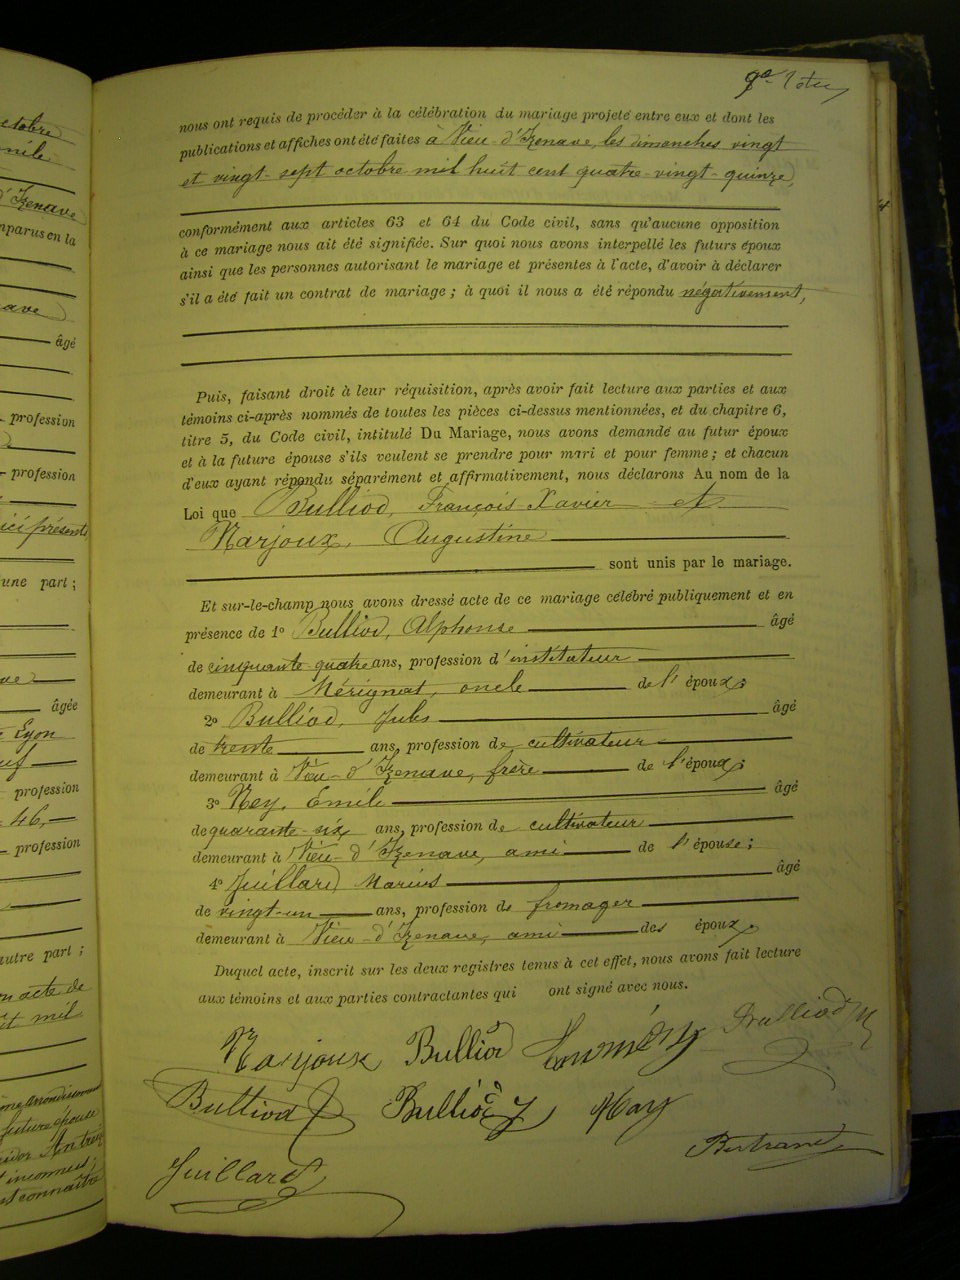 octobre
mile
d'Izenave
mparus en la
nave
âgé
profession
profession
ici présents
une part ;
âgée
Lyon
profession
46,
profession
autre part ;
acte de
et mil
future épouse
inconnus ;
connaître
nous ont requis de procéder à la célébration du mariage projeté entre eux et dont les
publications et affiches ont été faites à Vieu-d'Izenave, les dimanches vingt
et vingt-sept octobre mil huit cent quatre-vingt-quinze,
conformément aux articles 63 et 64 du Code civil, sans qu'aucune opposition
à ce mariage nous ait été signifiée. Sur quoi nous avons interpellé les futurs époux
ainsi que les personnes autorisant le mariage et présentes à l'acte, d'avoir à déclarer
s'il a été fait un contrat de mariage ; à quoi il nous a été répondu négativement,
Puis, faisant droit à leur réquisition, après avoir fait lecture aux parties et aux
témoins ci-après nommés de toutes les pièces ci-dessus mentionnées, et du chapitre 6,
titre 5, du Code civil, intitulé Du Mariage, nous avons demandé au futur époux
et à la future épouse s'ils veulent se prendre pour mari et pour femme ; et chacun
d'eux ayant répondu séparément et affirmativement, nous déclarons Au nom de la
Loi que Bulliod, François Xavier et
Marjoux, Augustine
sont unis par le mariage.
Et sur-le-champ nous avons dressé acte de ce mariage célébré publiquement et en
présence de 1o Bulliod, Alphonse âgé
de cinquante quatre ans, profession d'instituteur
demeurant à Mérignat, oncle de l'époux ;
2o Bulliod, Jules âgé
de trente ans, profession de cultivateur
demeurant à Vieu-d'Izenave, frère de l'époux ;
3o Ney, Emile âgé
de quarante-six ans, profession de cultivateur
demeurant à Vieu-d'Izenave, ami de l'épouse ;
4o Juillard Marius âgé
de vingt-un ans, profession de fromager
demeurant à Vieu-d'Izenave, ami des époux.
Duquel acte, inscrit sur les deux registres tenus à cet effet, nous avons fait lecture
aux témoins et aux parties contractantes qui ont signé avec nous.
Marjoux Bulliod Bulliod
Bulliod Bulliod J
Bertrand
Juillard